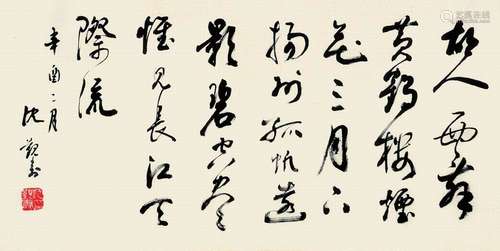 故人西辭
黄鶴樓煙
花三月下
揚州孤帆遠
影碧空盡
惟見長江天
際流
辛酉二月 沈覲壽
易拍全球